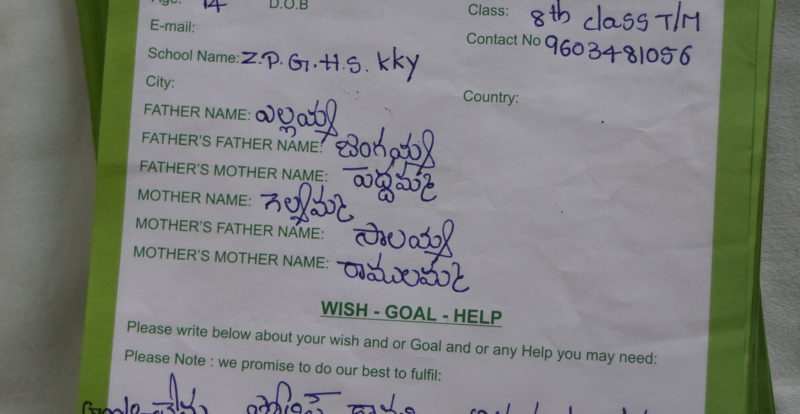 Age: 14 D.O.B
Class: 8th class T/M
E-mail:
Contact No 9603481056
School Name: Z.P.G.H.S. kky
City:
Country:
FATHER NAME: ఎల్లయ్య
FATHER'S FATHER NAME: జంగయ్య
FATHER'S MOTHER NAME: పెద్దమ్మ
MOTHER NAME:
MOTHER'S FATHER NAME: సాలయ్య
MOTHER'S MOTHER NAME: రాములమ్మ
WISH - GOAL - HELP
Please write below about your wish and or Goal and or any Help you may need:
Please Note : we promise to do our best to fulfil: